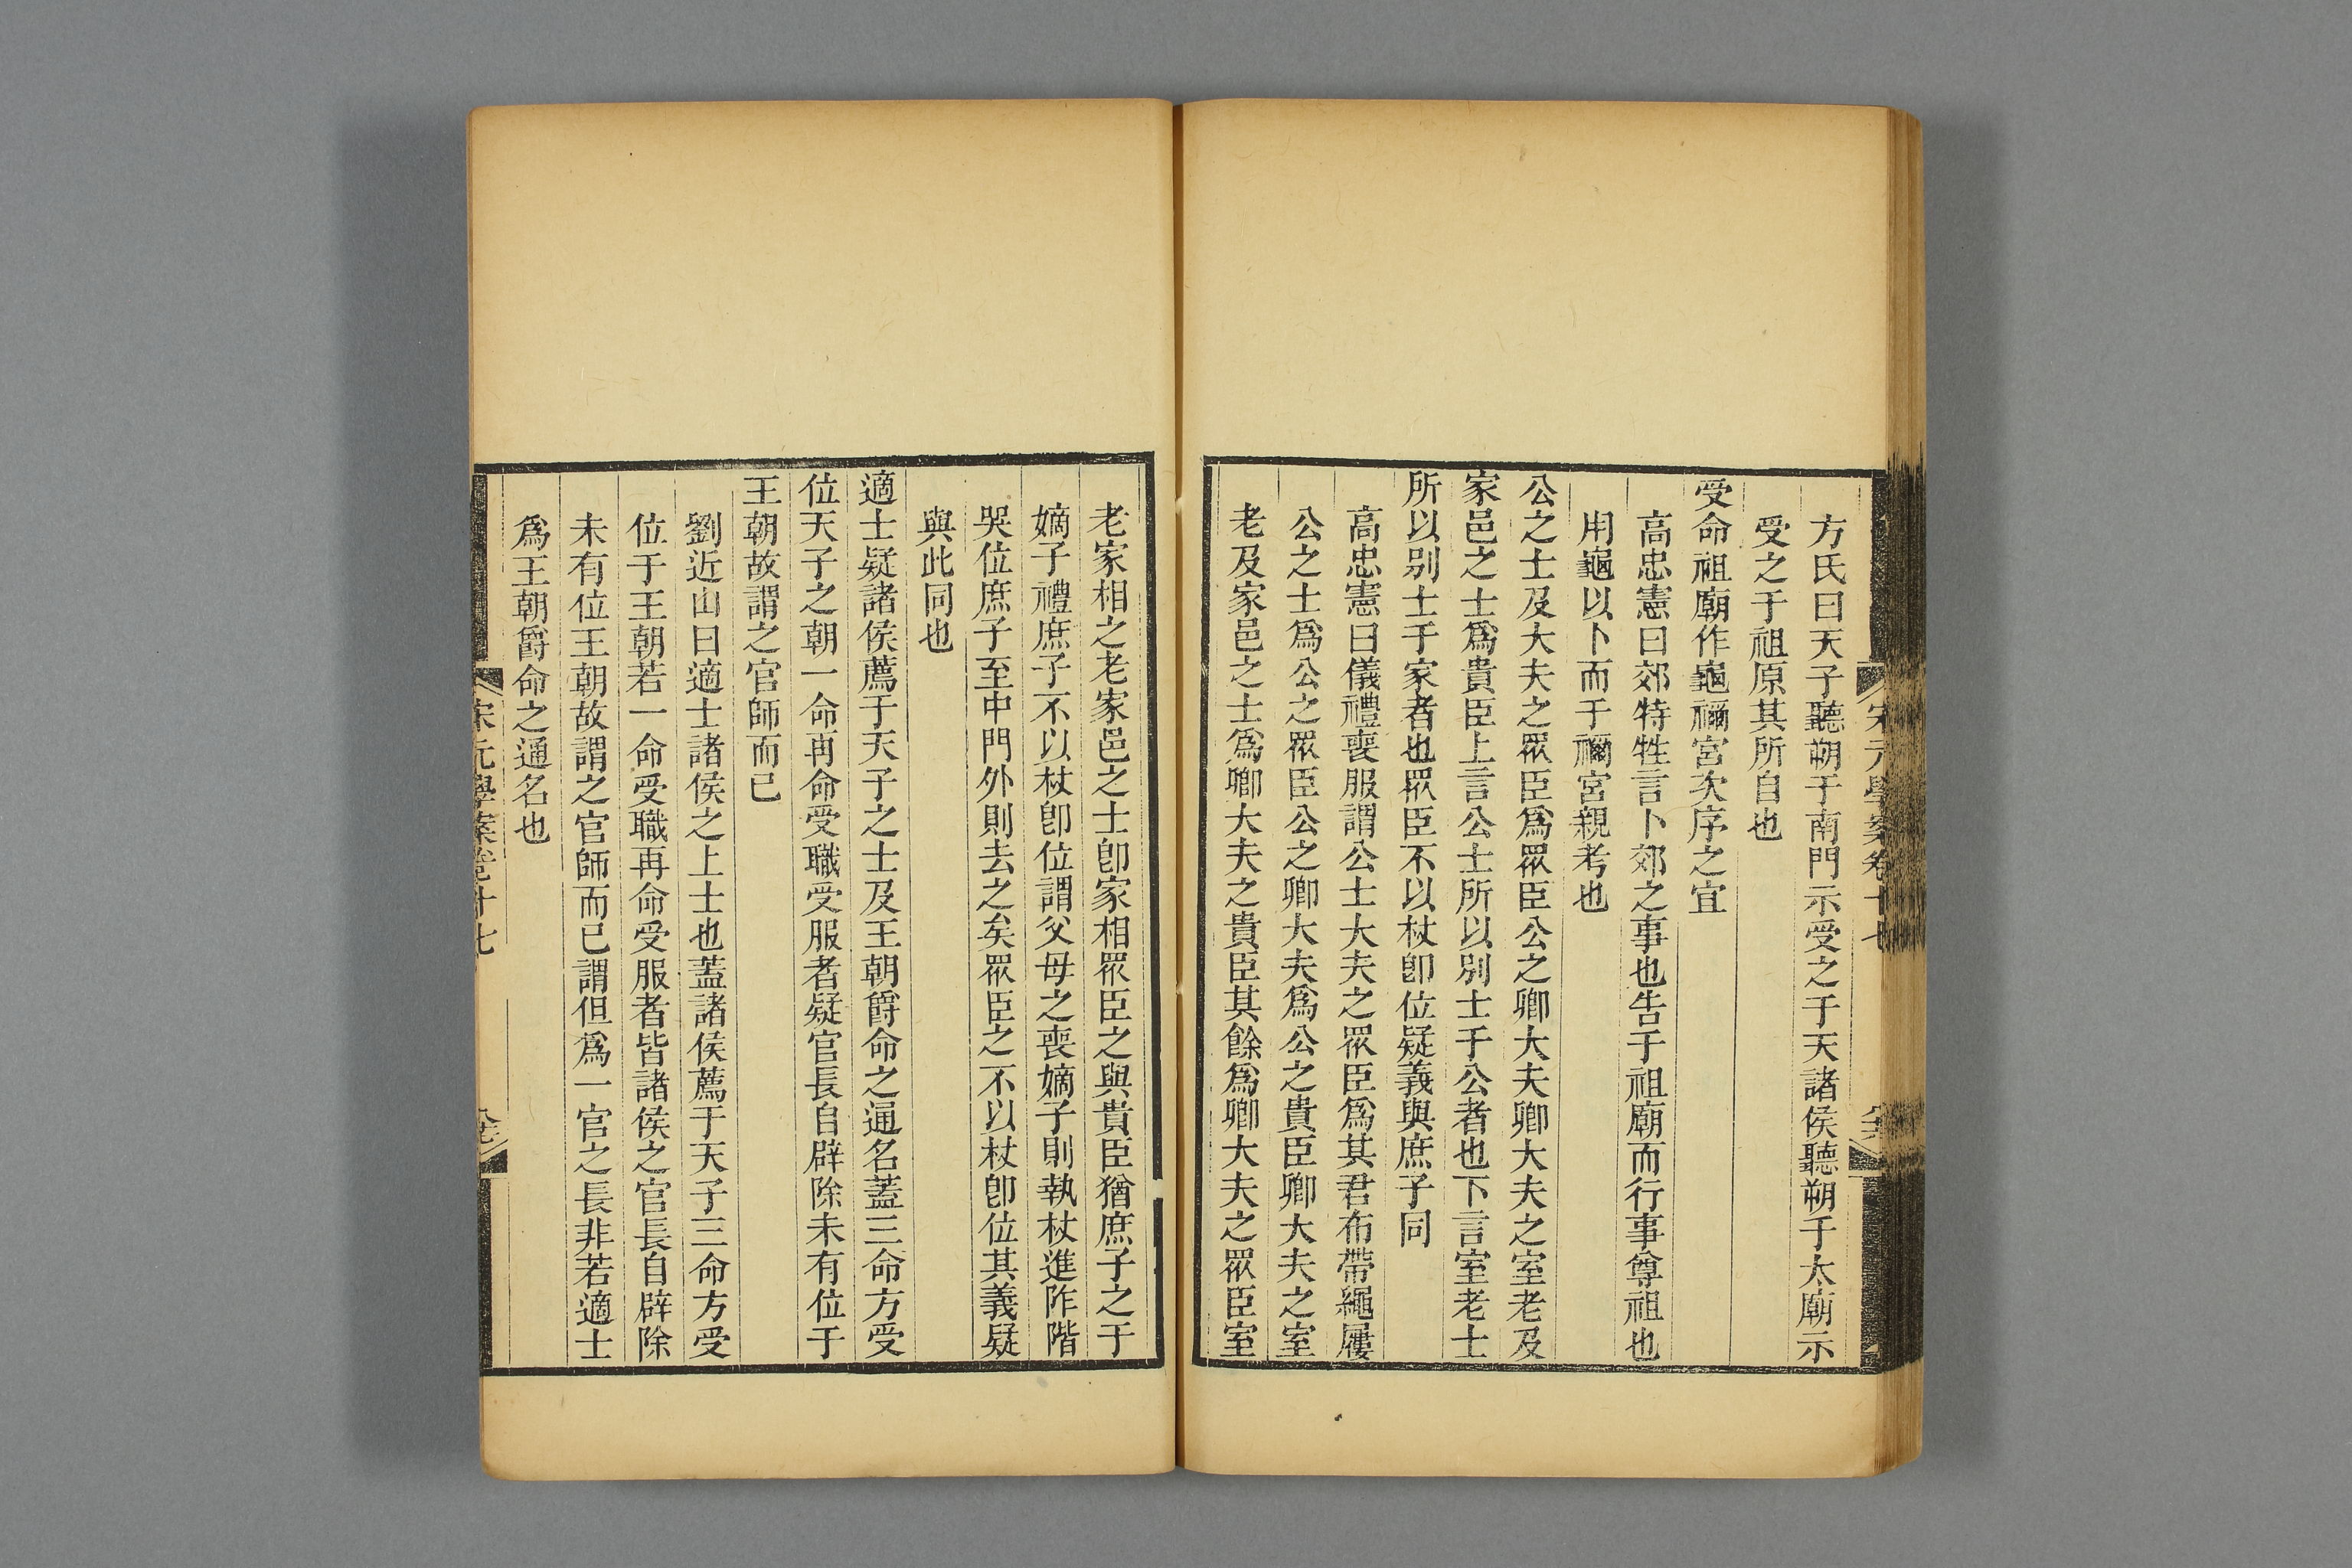 方氏曰天子聽朔于南門示受之于天諸侯聽朔于太廟示
受之于祖原其所自也
受命祖廟作龜禰宮次序之宜
高忠憲曰郊特牲言卜郊之事也告于祖廟而行事尊祖也
用龜以卜而于禰宮親考也
公之士及大夫之眾臣爲眾臣公之卿大夫卿大夫之室老及
家邑之士爲貴臣上言公士所以別士于公者也下言室老士
所以別士于家者也眾臣不以杖卽位疑義與庶子同
高忠憲曰儀禮喪服謂公士大夫之眾臣爲其君布帶繩屨
公之士爲公之眾臣公之卿大夫爲公之貴臣卿大夫之室
老及家邑之士爲卿大夫之貴臣其餘爲卿大夫之眾臣室
老家相之老家邑之士卽家相眾臣之與貴臣猶庶子之于
嫡子禮庶子不以杖卽位謂父母之喪嫡子則執杖進阼階
哭位庶子至中門外則去之矣眾臣之不以杖卽位其義疑
與此同也
適士疑諸侯薦于天子之士及王朝爵命之通名蓋三命方受
位天子之朝一命再命受職受服者疑官長自辟除未有位于
王朝故謂之官師而已
劉近山曰適士諸侯之上士也蓋諸侯薦于天子三命方受
位于王朝若一命受職再命受服者皆諸侯之官長自辟除
未有位王朝故謂之官師而已謂但爲一官之長非若適士
爲王朝爵命之通名也
宋元學案卷十七